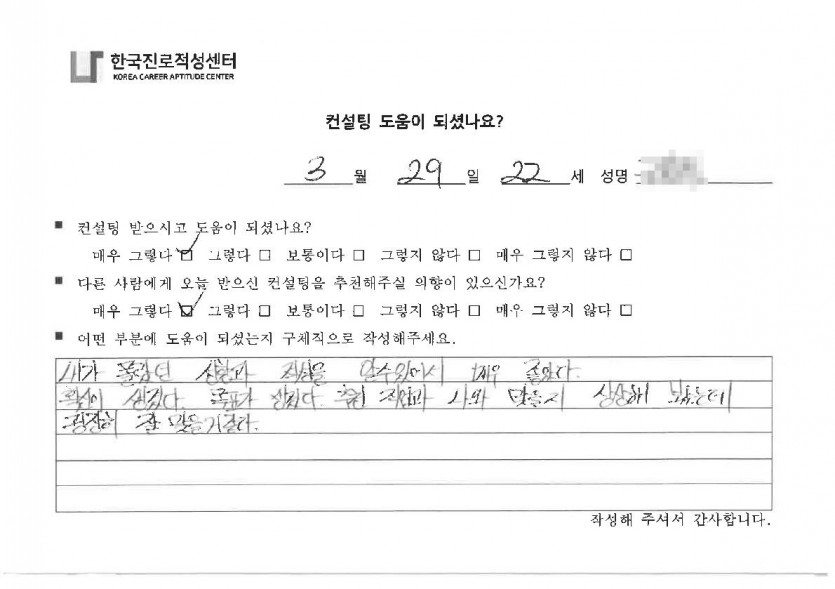 한국진로적성센터
KOREA CAREER APTITUDE CENTER
컨설팅 도움이 되셨나요?
3 월 29 일 22 세 성명
■ 컨설팅 받으시고 도움이 되셨나요?
매우 그렇다 ☑ 그렇다 □ 보통이다 □ 그렇지 않다 □ 매우 그렇지 않다 □
■ 다른 사람에게 오늘 받으신 컨설팅을 추천해주실 의향이 있으신가요?
매우 그렇다 ☑ 그렇다 □ 보통이다 □ 그렇지 않다 □ 매우 그렇지 않다 □
■ 어떤 부분에 도움이 되셨는지 구체적으로 작성해주세요.
내가 몰랐던 성향과 적성을 알수있어서 매우 좋았다.
확신이 생겼다. 목표가 생겼다. 추천 직업과 나와 맞을지 상상해 보았는데
굉장히 잘 맞을거같다.
작성해 주셔서 감사합니다.